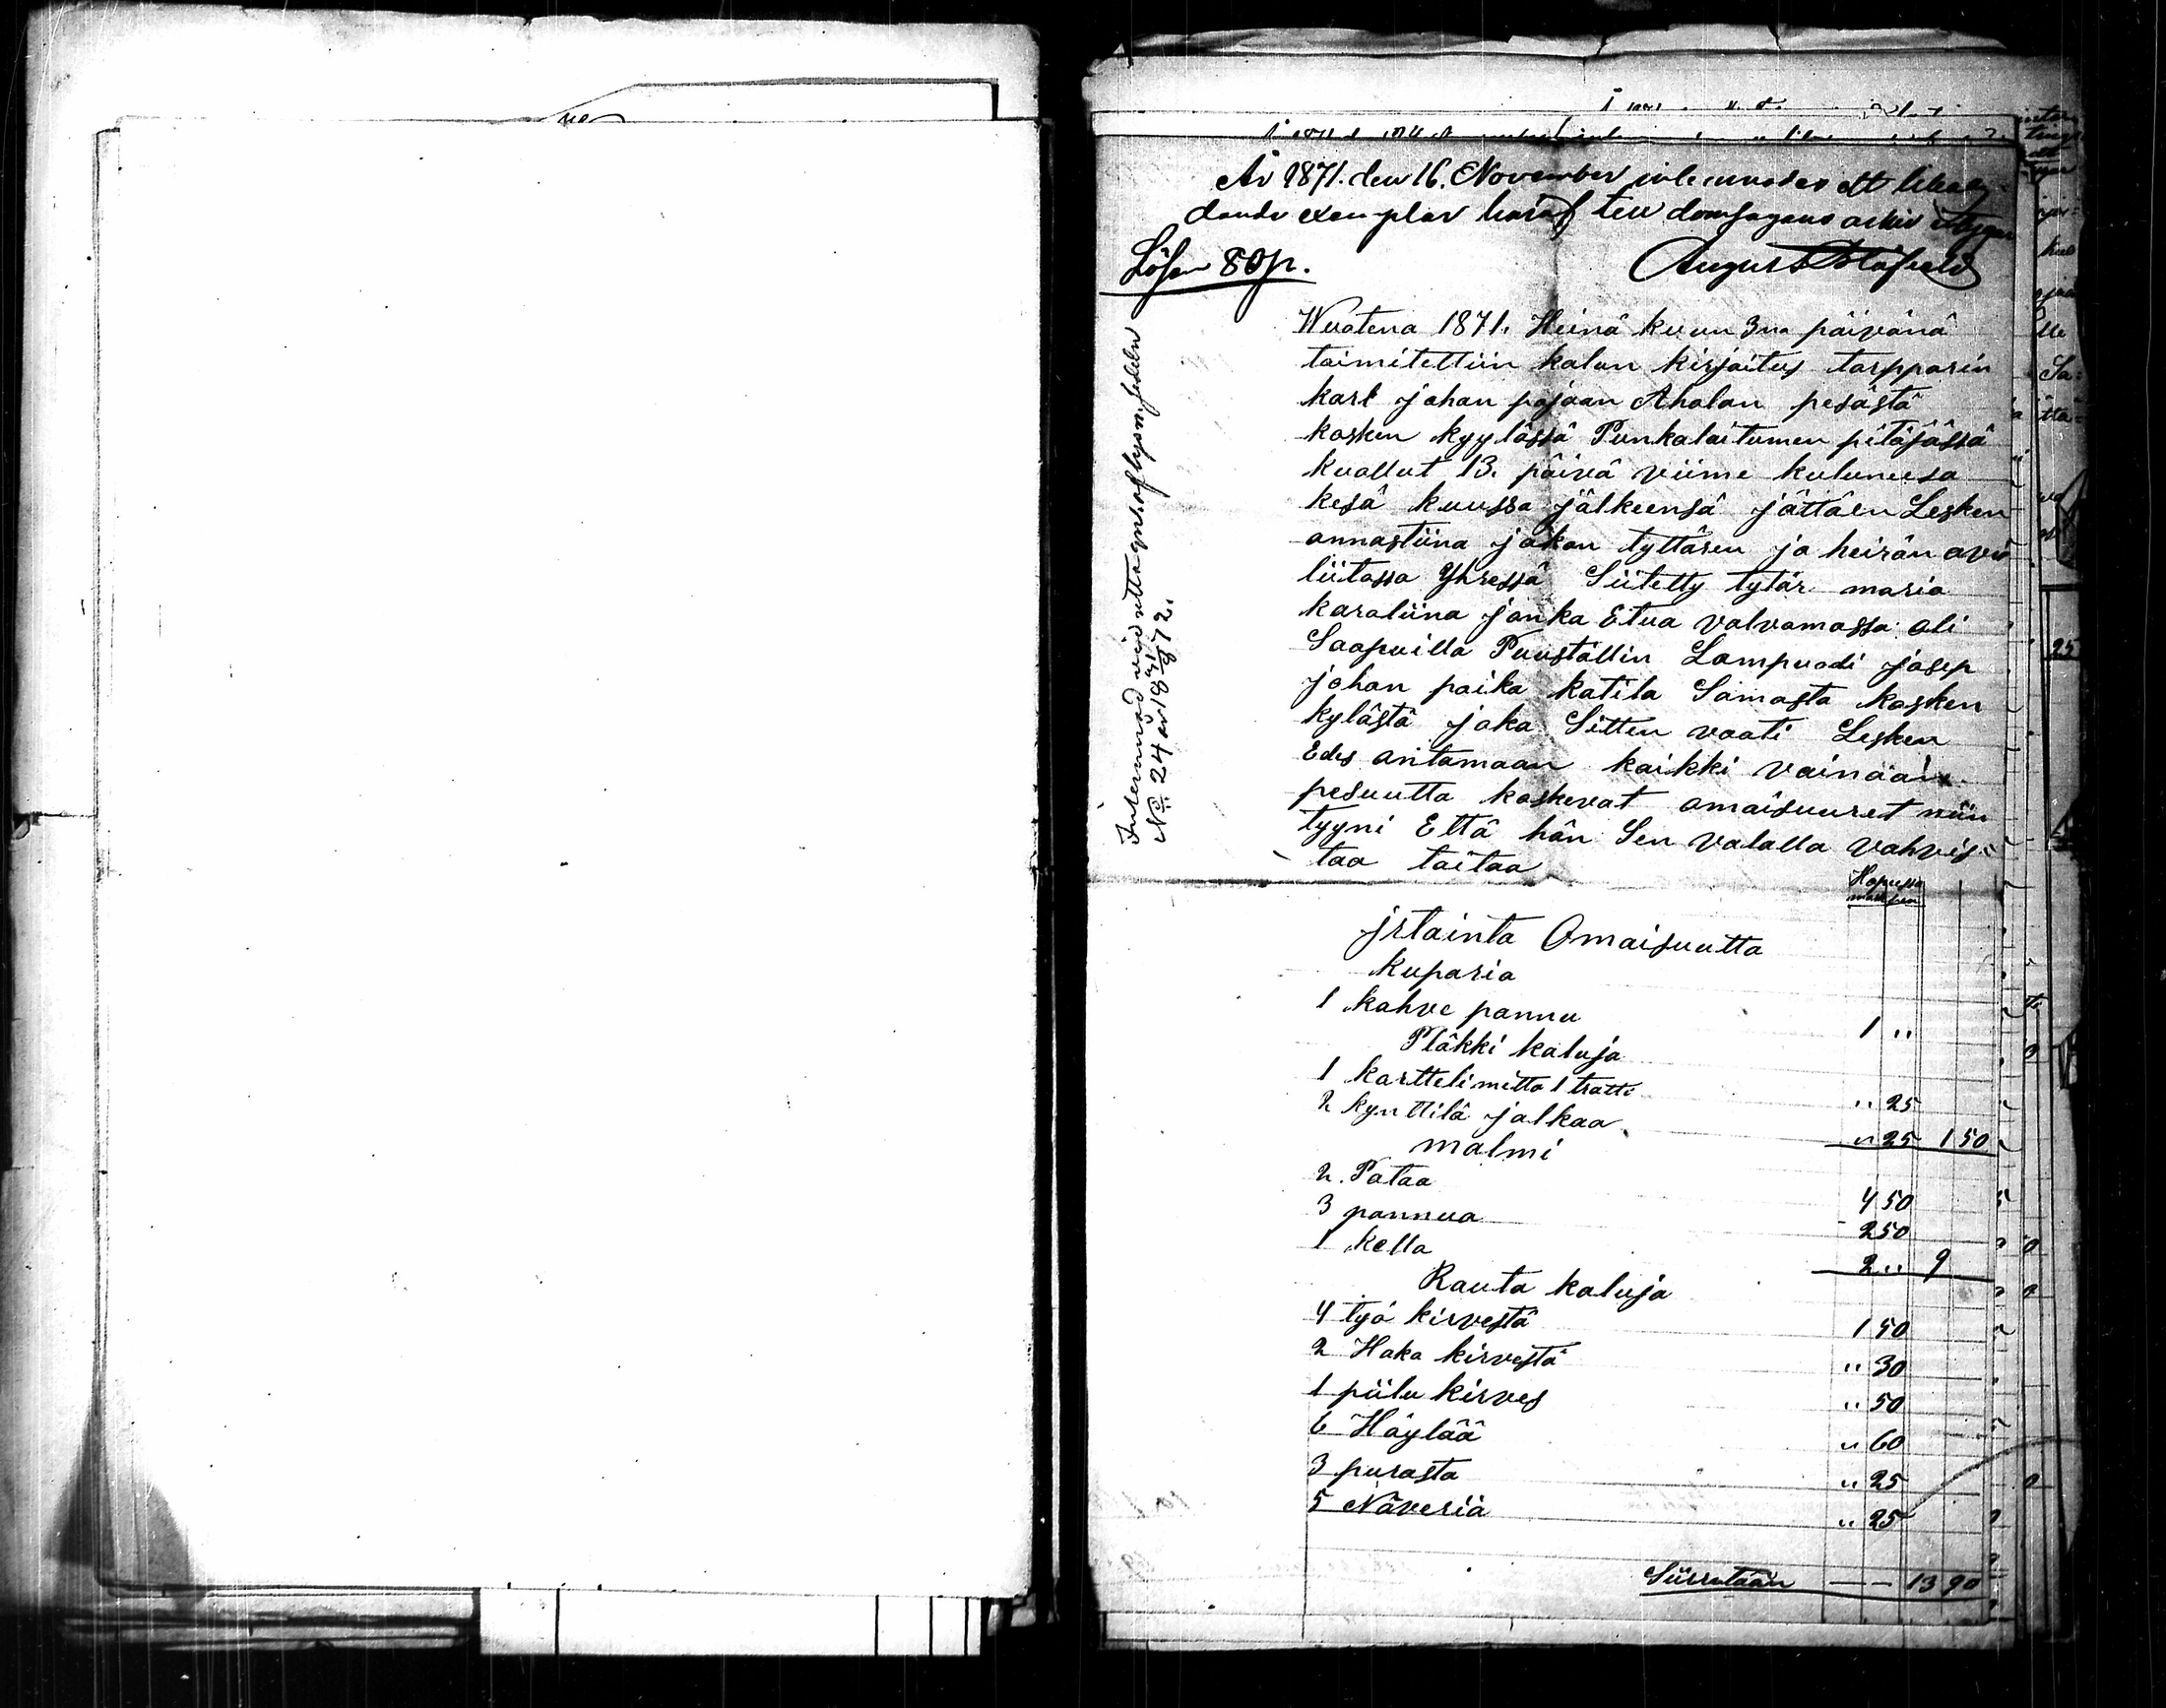 År 1871. den 16. November inlemnades ett likaly-
dande exemplar häraf till domsagans arkiv
Lösen 80 p.
August
Wuotena 1871. Heinä kuun 3na päivänä
toimitettiin kalun kirjoitus torpparin
karl johan pojaan Aholan pesästä
kosken kyylässä Punkalaitumen pitäjässä
kuollut 13. päivä viime kuluneesa
kesä kuussa jälkeensä jättäen Lesken
annastiina jakon tyttären ja heirän avio
liitossa Yhressä Siitetty tytär maria
karoliina jonka Etua valvomassa oli
Saapuilla Puustallin Lampuodi josep
johan poika katila Samasta kosken
kylästä joka Sitten vaati Lesken
Edes antamaan kaikki vainaan
pesuutta koskevat omaisuuret niin
tyyni Että hän Sen valalla vahvis-
taa taitaa
Inlemnad vid
No 24 år 1872.
Hopussa
mark pen
jrtainta Omaisuutta
kuparia
1 kahve pannu 1 "
Pläkki kaluja
1 karttelimitta 1 tratti " 25
2 kynttilä jalkaa " 25 1 50
malmi
2. Pataa 4 50
3 pannua 2 50
1 kello 2 " 9
Rauta kaluja
4 työ kirvestä 1 50
2 Haka kirvestä " 30
1 piilu kirves " 50
6 Höylää " 60
3 purasta " 25
5 Näveriä " 25
Siirretään — — 13 90